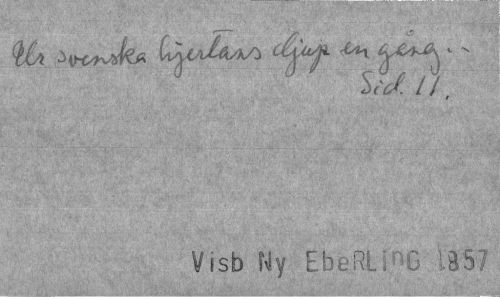 Ur svenska hjertans djup en gång..
Sid. 11.
Visb Ny EbeRLInG 1857